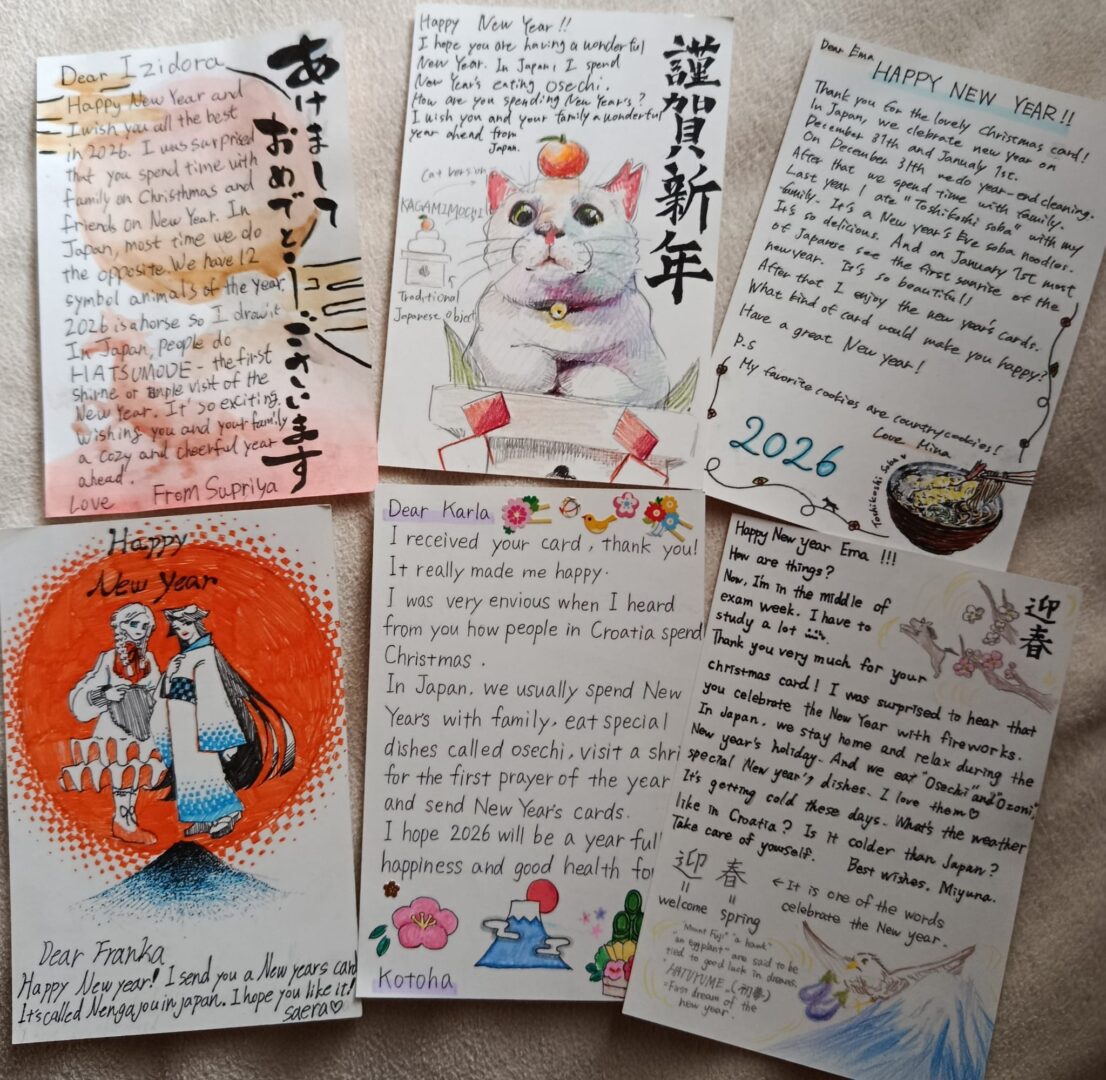 Dear Izidora
Happy New Year and
I wish you all the best
in 2026. I was surprised
that you spend time with
family on Christhmas and
friends on New Year. In
Japan, most time we do
the opposite. We have 12
symbol animals of the year.
2026 is a horse so I drow it
In Japan, people do
HATSUMODE - the first
shirne or temple visit of the
New Year. It' so exciting.
wishing you and your family
a cozy and cheerful year
ahead.
Love From Supriya
あけまして
おめでとう
ございます
Happy New Year!!
I hope you are having a wonderful
New Year. In Japan, I spend
New Year's eating Osechi.
How are you spending New Year's?
I wish you and your family a wonderful
year ahead from
Japan.
謹賀新年
Cat version
KAGAMIMOCHI
Traditional
Japanese object
Dear Ema
HAPPY NEW YEAR!!
Thank you for the lovely Christmas card!
In Japan, we clebrate new year on
December 31th and Janualy 1st.
On December 31th we do year-end cleaning.
After that we spend time with family.
Last year I ate "Toshikoshi soba" with my
family. It's a New year's Eve soba noodles.
It's so delicious. And on January 1st most
of Japanese see the first sunrise of the
new year. It's so beautiful!
After that I enjoy the new year's cards.
What kind of card would make you happy?
Have a great New year!
P.S
My favorite cookies are country cookies!
Love Mina
2026
Toshikoshi Soba
Happy
New Year
Dear Franka
Happy New year! I send you a New years card
It's called Nengajou in japan. I hope you like it!
saera♡
Dear Karla
I received your card, thank you!
It really made me happy.
I was very envious when I heard
from you how people in Croatia spend
Christmas.
In Japan, we usually spend New
Year's with family, eat special
dishes called osechi, visit a shri
for the first prayer of the year
and send New Year's cards.
I hope 2026 will be a year full
happiness and good health fo
Kotoha
Happy New year Ema !!!
How are things?
Now, I'm in the middle of
exam week. I have to
study a lot
Thank you very much for your
christmas card! I was surprised to hear that
you celebrate the New Year with fireworks.
In Japan, we stay home and relax during the
New year's holiday. And we eat "Osechi" and "Ozoni",
special New year's dishes. I love them♡
It's getting cold these days. What's the weather
like in Croatia? Is it colder than Japan?
Take care of yourself. Best wishes, Miyuna.
迎春
迎 春
= =
welcome spring
← It is one of the words
celebrate the New year.
"Mount Fuji" "a hawk"
"an eggplant" are said to be
tied to good luck in dreams.
HATUYUME (初夢)
=First dream of the
new year.